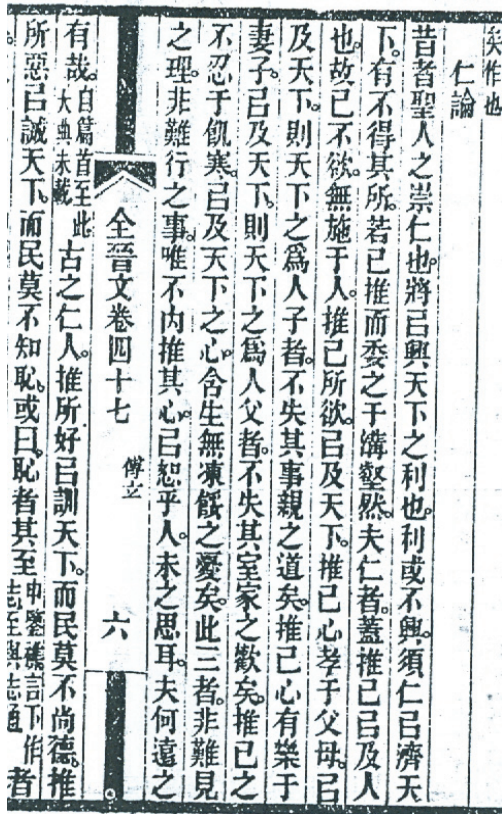 矣作也
仁論
昔者聖人之崇仁也。將㠯興天下之利也。利或不興。須仁㠯濟天
下。有不得其所。若已推而委之于溝壑然。夫仁者。蓋推已㠯及人
也。故已不欲。無施于人。推己所欲。㠯及天下。推己心孝于父母。㠯
及天下。則天下之爲人子者。不失其事親之道矣。推己心有樂于
妻子。㠯及天下。則天下之爲人父者。不失其室家之歡矣。推已之
不忍于飢寒。㠯及天下之心。含生無凍餒之憂矣。此三者。非難見
之理。非難行之事。唯不內推其心。㠯恕乎人。未之思耳。夫何遠之
全晉文卷四十七 傅立 六
有哉。自篇首至此大典未載古之仁人。推所好㠯訓天下。而民莫不尚德。推
所惡㠯誡天下。而民莫不知恥。或曰。恥者其至者